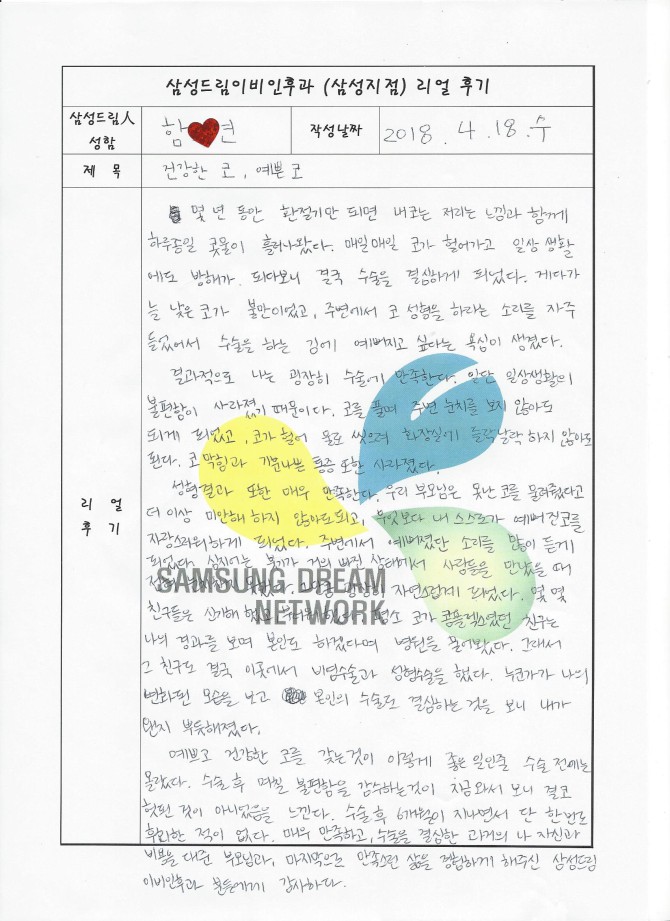 삼성드림이비인후과 (삼성지점) 리얼 후기
삼성드림人
성함
함♥연
작성날짜
2018. 4. 18. 수
제 목
건강한 코, 예쁜 코
리 얼
후 기
몇 년 동안 환절기만 되면 내코는 저리는 느낌과 함께
하루종일 콧물이 흘러나왔다. 매일매일 코가 헐어가고 일상생활
에도 방해가 되다보니 결국 수술을 결심하게 되었다. 게다가
늘 낮은 코가 불만이었고, 주변에서 코 성형을 하라는 소리를 자주
들었어서 수술을 하는 김에 예뻐지고 싶다는 욕심이 생겼다.
결과적으로 나는 굉장히 수술에 만족한다. 일단 일상생활의
불편함이 사라졌기 때문이다. 코를 풀며 주변 눈치를 보지 않아도
되게 되었고, 코가 헐어 물로 씻으려 화장실에 들락날락 하지 않아도
된다. 코막힘과 기분나쁜 통증 또한 사라졌다.
성형결과 또한 매우 만족한다. 우리 부모님은 못난 코를 물려줬다고
더 이상 미안해 하지 않아도되고, 무엇보다 내 스스로가 예뻐진코를
자랑스러워하게 되었다. 주변에서 예뻐졌단 소리를 많이 듣게
되었다. 심지어는 붓기가 거의 빠진 상태에서 사람들을 만났을 때
자연스럽게 되었다. 몇몇
친구들은 신기해 했고 코가 콤플렉스였던 친구는
나의 결과를 보며 본인도 하겠다며 병원을 물어봤다. 그래서
그 친구도 결국 이곳에서 비염수술과 성형수술을 했다. 누군가가 나의
변화된 모습을 보고 본인의 수술도 결심하는 것을 보니 내가
왠지 뿌듯해졌다.
예쁘고 건강한 코를 갖는것이 이렇게 좋은 일인줄 수술 전에는
몰랐다. 수술 후 며칠 불편함을 감수하는것이 지금와서 보니 결코
헛된 것이 아니었음을 느낀다. 수술 후 6개월이 지나면서 단 한번도
후회한 적이 없다. 매우 만족하고, 수술을 결심한 과거의 나 자신과
비용을 대준 부모님과, 마지막으로 만족스런 삶을 영위하게 해주신 삼성드림
이비인후과 분들에게 감사하다.
SAMSUNG DREAM
NETWORK